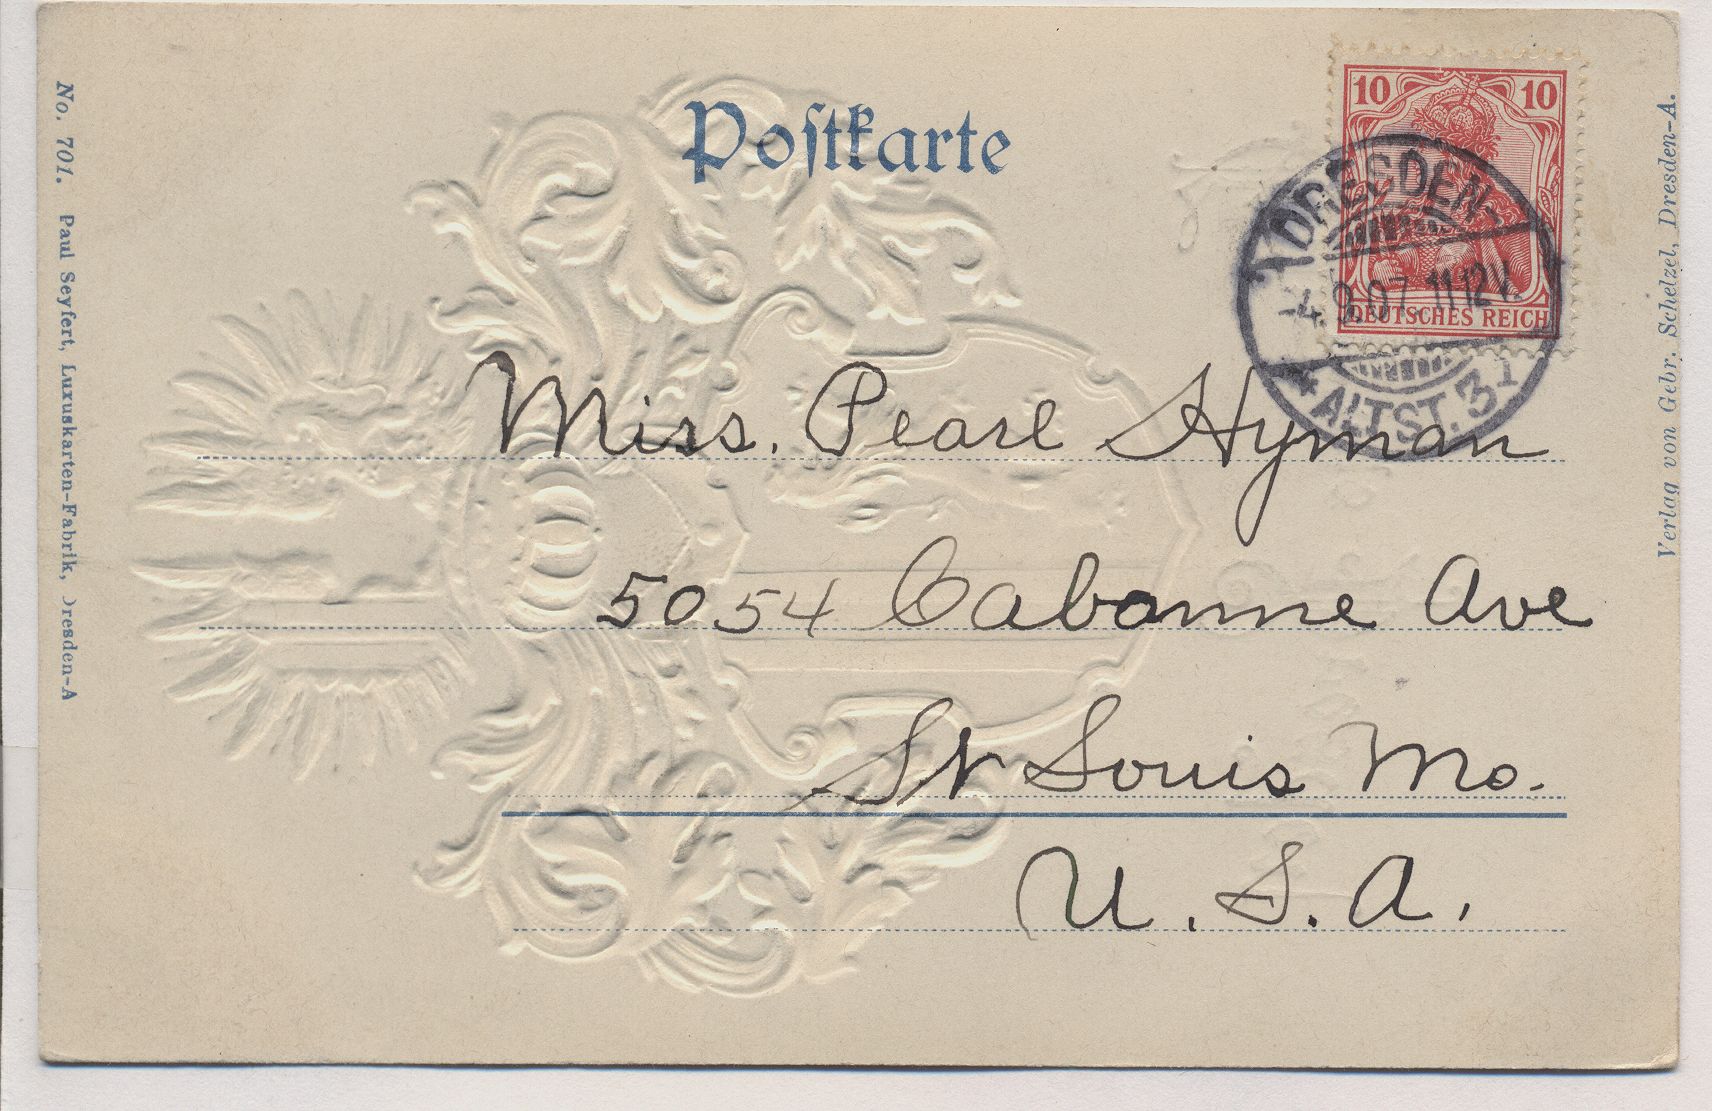 Poſtkarte
10 10
DEUTSCHES REICH
DRESDEN-
4.9.07. 11-12V.
* ALTST. 3
Miss. Pearl Hyman
5054 Cabanne Ave
St Louis Mo.
U. S. A.
No. 701. Paul Seyfert, Luxuskarten-Fabrik, Dresden-A
Verlag von Gebr. Schelzel, Dresden-A.